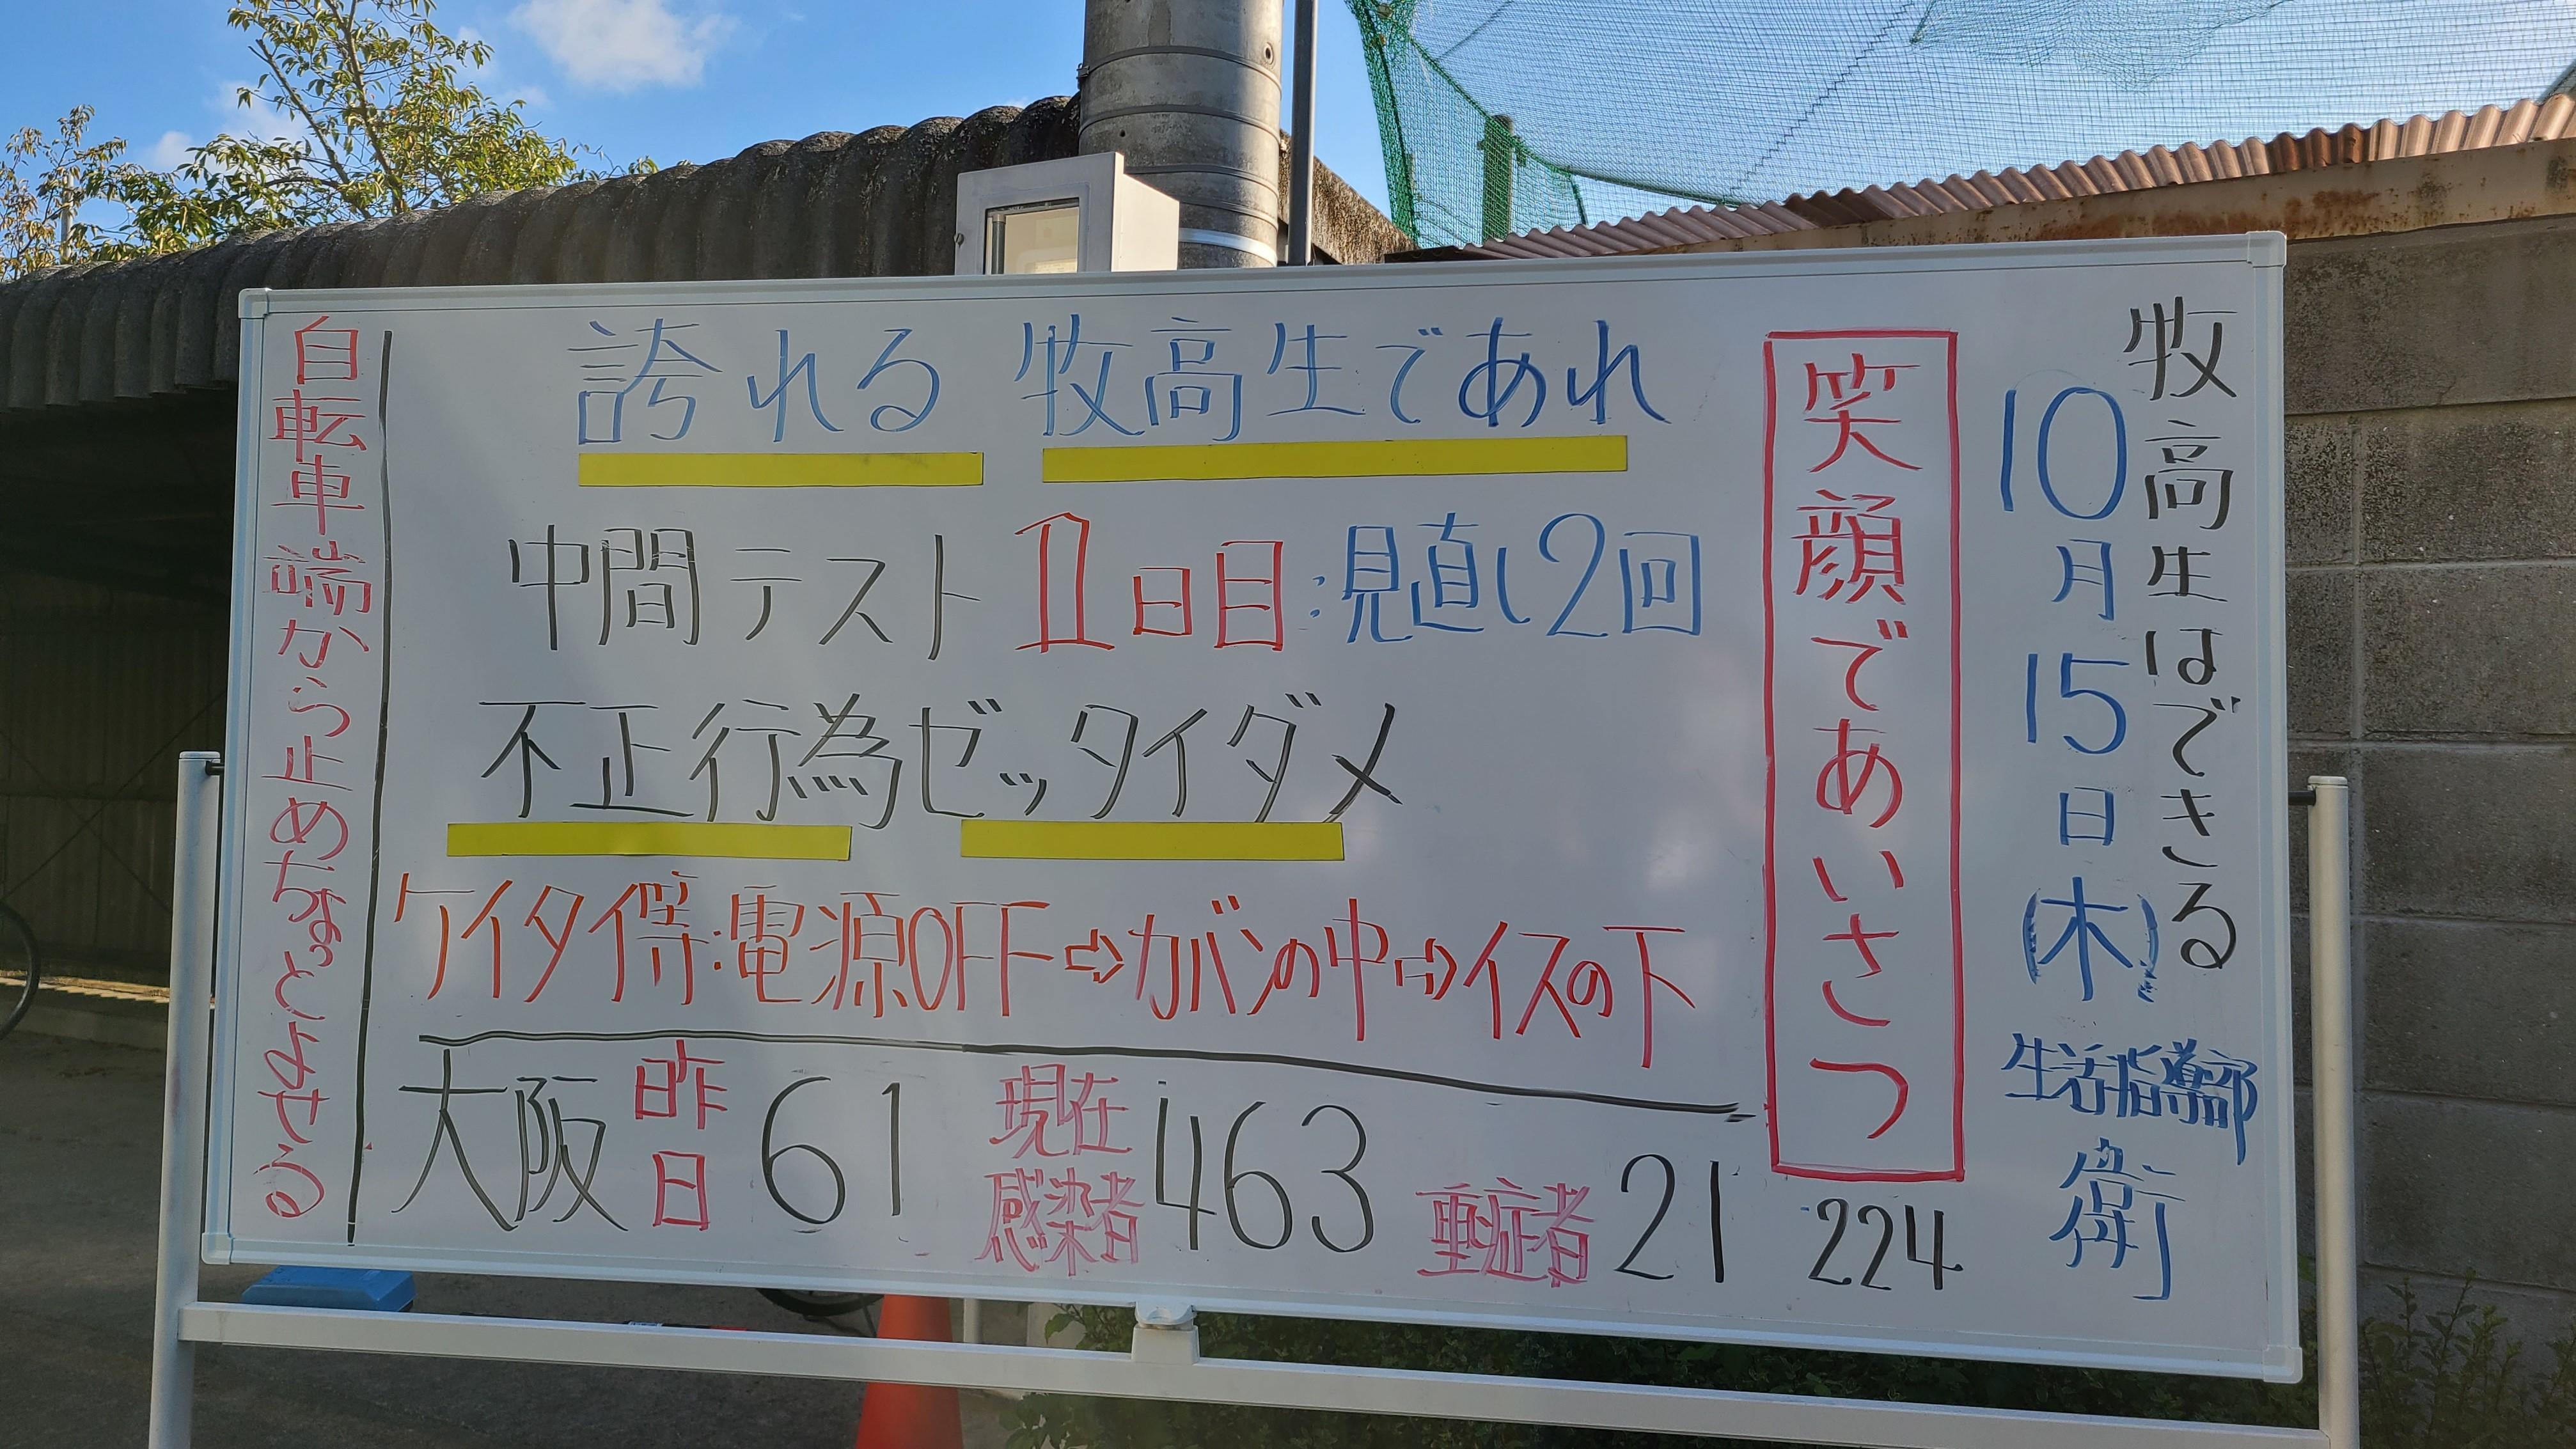 牧高生はできる
10月15日(木)
生活指導部
衛
笑顔であいさつ
誇れる 牧高生であれ
中間テスト1日目:見直し2回
不正行為ゼッタイダメ
ケイタイ等:電源OFF⇨カバンの中⇨イスの下
大阪 昨日 61 現在感染者 463 重症者 21 224
自転車端から止めちょっとよせる